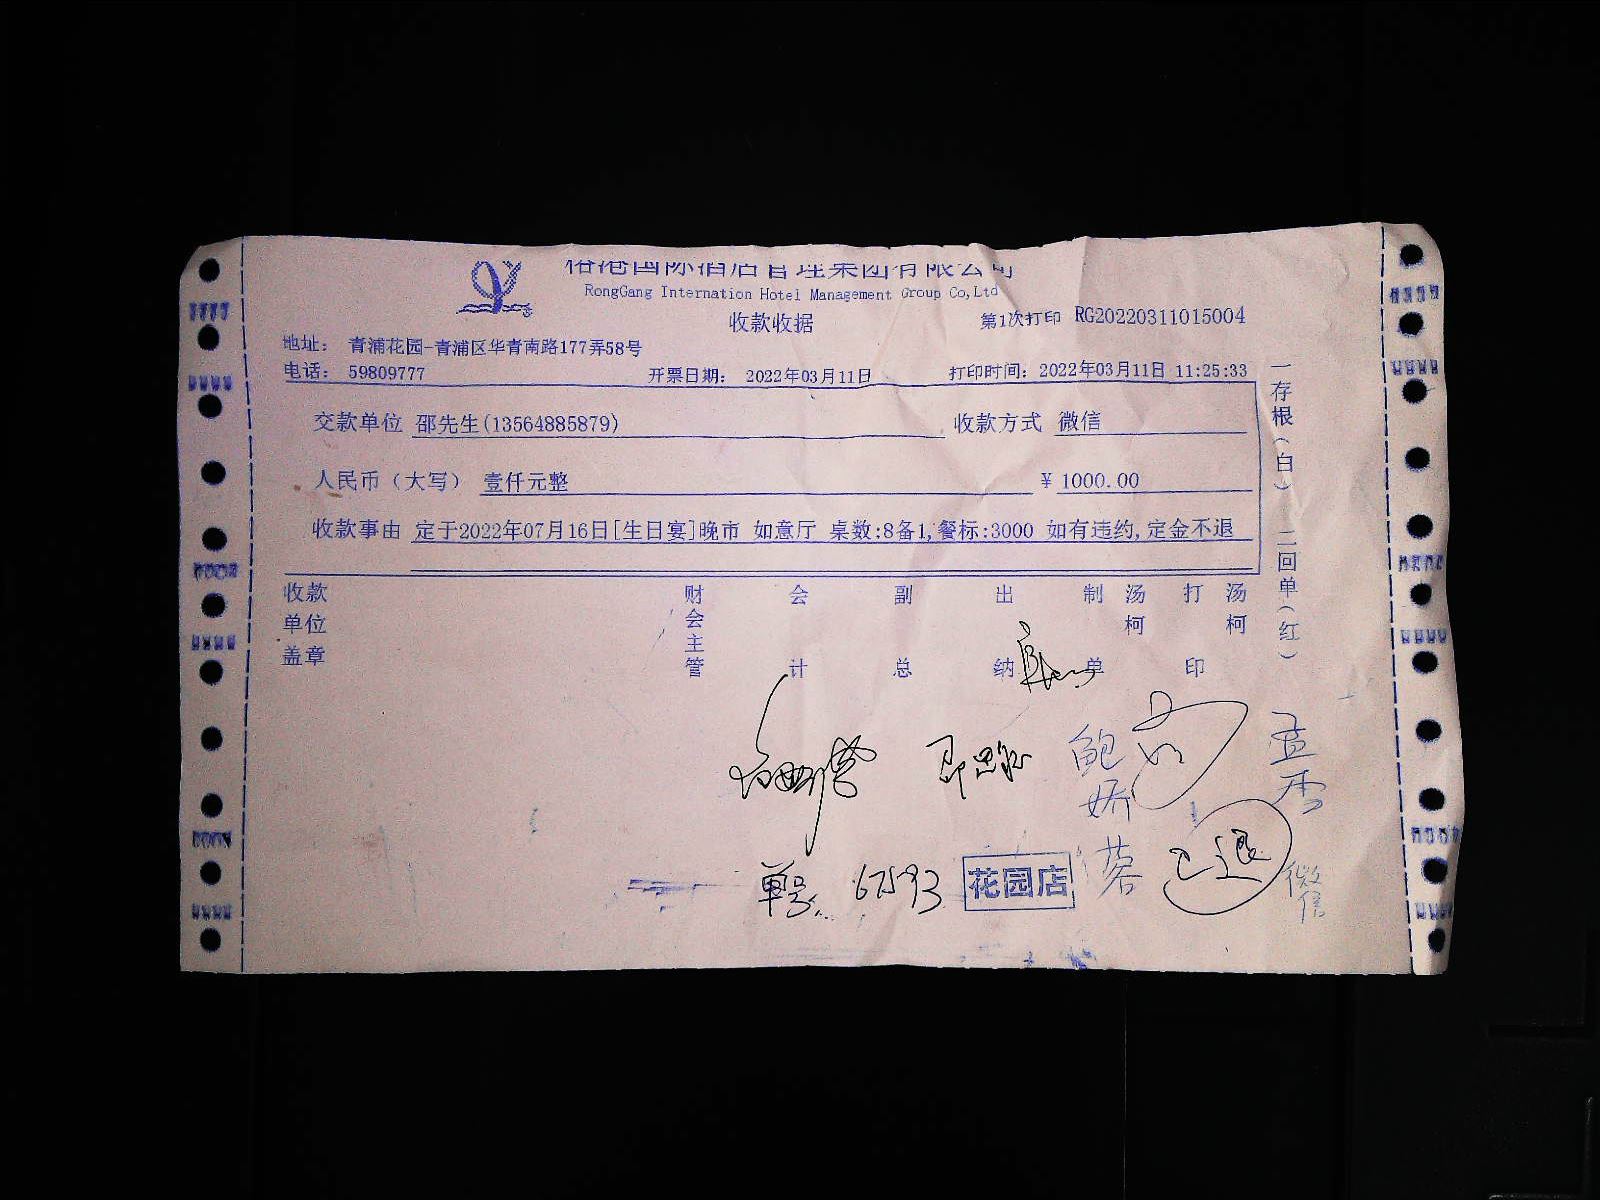 榕港国际酒店管理集团有限公司
RongGang Internation Hotel Management Group Co,Ltd
收款收据
第1次打印 RG20220311015004
地址： 青浦花园-青浦区华青南路177弄58号
电话： 59809777 开票日期： 2022年03月11日 打印时间：2022年03月11日 11:25:33
交款单位 邵先生(13564885879) 收款方式 微信
人民币（大写） 壹仟元整 ¥ 1000.00
收款事由 定于2022年07月16日[生日宴]晚市 如意厅 桌数:8备1,餐标:3000 如有违约,定金不退
一存根(白) 二回单(红)
收款单位盖章 财会主管 会计 副总 出纳 制单 汤柯 打印 汤柯
鲍娇蓉
单号 67593
花园店
已退
微信